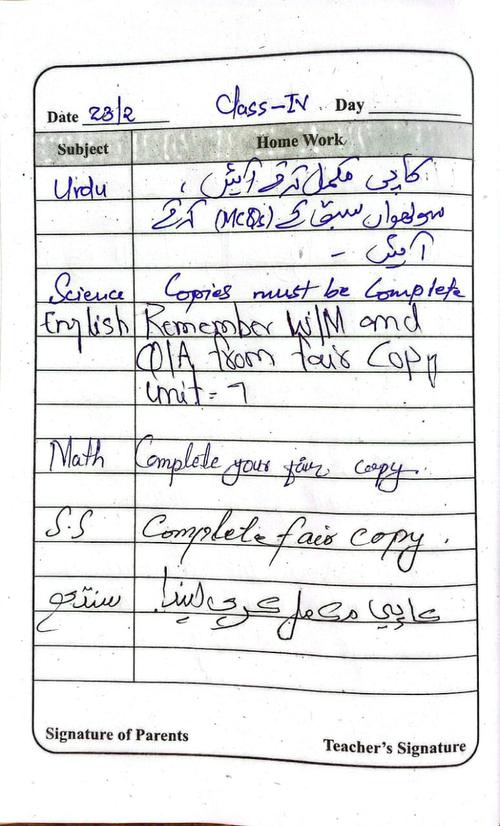 Date 28/2 Class-IV Day
Subject Home Work
Urdu کاپی مکمل کرکے آئیں ،
سولھواں سبق کے (McQs) کرکے
آئیں -
Science Copies must be Complete
English Remember W/M and
Q/A from fair Copy
Unit = 7
Math Complete your fair copy.
S.S Complete fair copy.
سنڌي ڪاپي مڪمل ڪري ايندا.
Signature of Parents Teacher's Signature